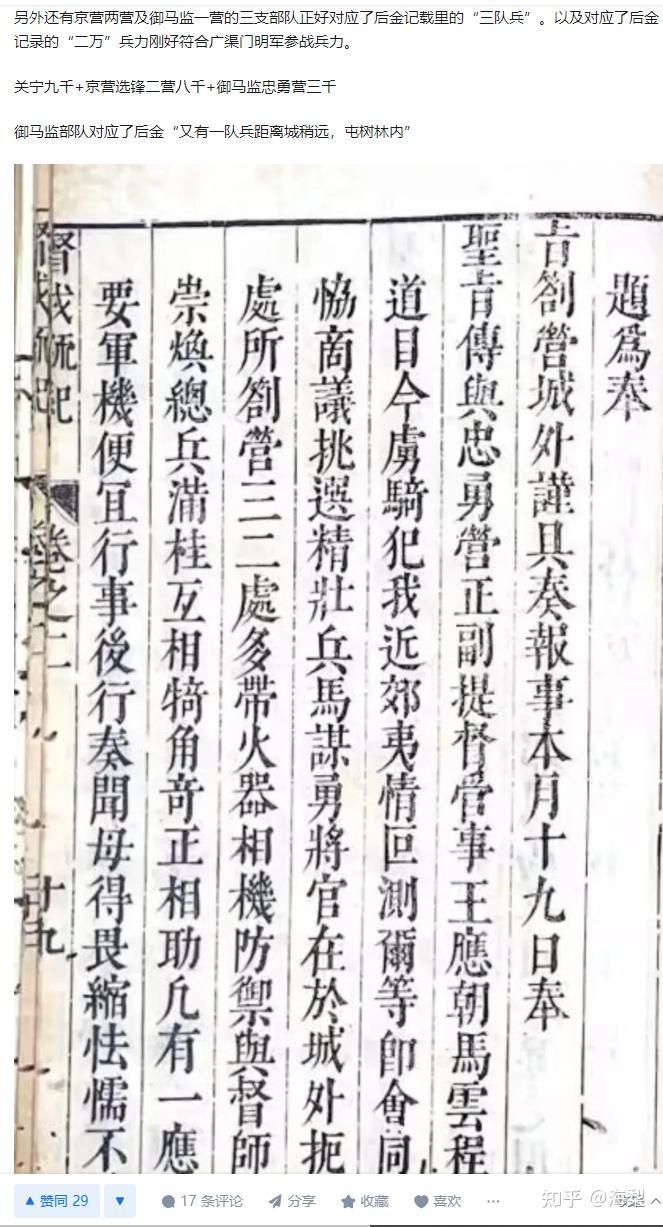 另外还有京营两营及御马监一营的三支部队正好对应了后金记载里的“三队兵”。以及对应了后金
记录的“二万”兵力刚好符合广渠门明军参战兵力。
关宁九千+京营选锋二营八千+御马监忠勇营三千
御马监部队对应了后金“又有一队兵距离城稍远，屯树林内”
題為奉
旨劄營城外謹具奏報事本月十九日奉
聖旨傳與忠勇營正副提督營事王應朝馬雲程
道目今虜騎犯我近郊夷情叵測爾等即會同
恊商議挑選精壯兵馬謀勇將官在於城外扼
處所劄營三二處多帶火器相機防禦與督師
崇煥總兵滿桂互相犄角奇正相助凡有一應
要軍機便宜行事後行奏聞毋得畏縮怯懦不
督戎疏紀
卷之二
十九
赞同 29
17 条评论
分享
收藏
喜欢
知乎 @海梨